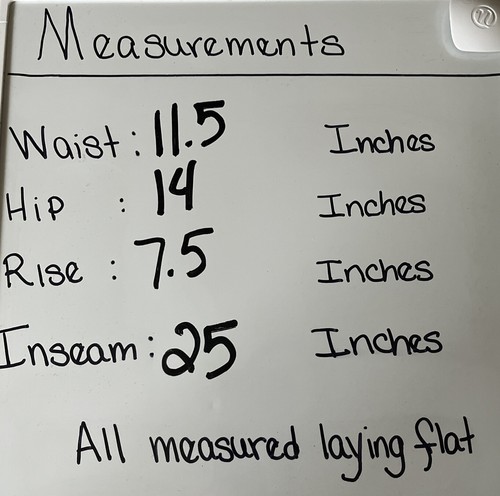 Measurements
Waist : 11.5 Inches
Hip : 14 Inches
Rise : 7.5 Inches
Inseam : 25 Inches
All measured laying flat